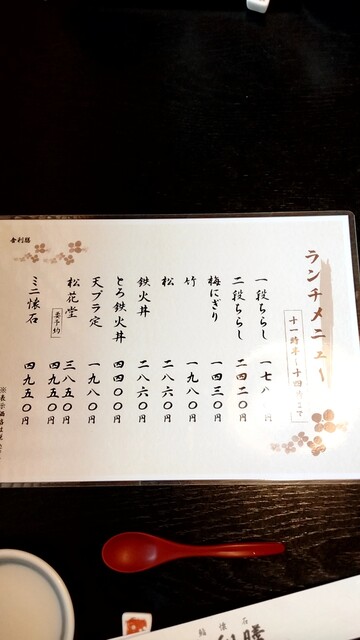 ランチメニュー
十一時半〜十四時まで
一段ちらし 一七八〇円
二段ちらし 二四二〇円
梅にぎり 一四三〇円
竹 一九八〇円
松 二八六〇円
鉄火丼 二八六〇円
とろ鉄火丼 四四〇〇円
天プラ定 一九八〇円
松花堂 三八五〇円
要予約 四九五〇円
ミニ懐石 四九五〇円
※表示価格は税
舎利膳
鮨 懐石
利膳